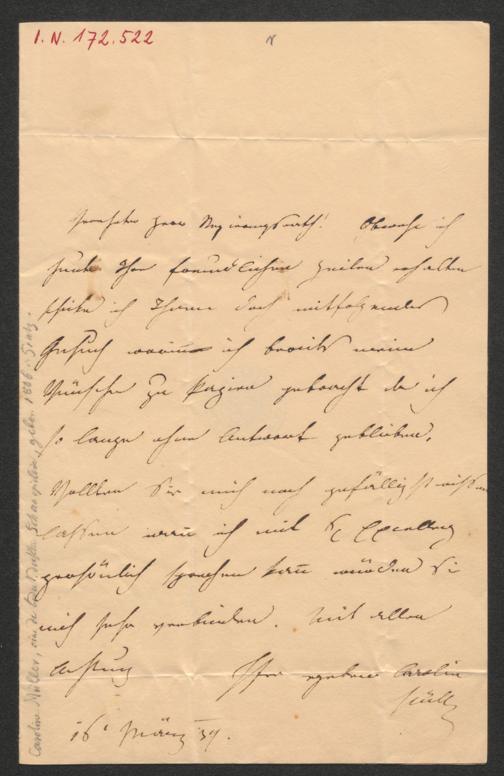 I. N. 172.522
Verehrter Herr Regierungsrath! Obwohl ich
heute Ihre freundlichen Zeilen erhalten
schicke ich Ihnen doch mitfolgendes
Gesuch worin ich bereits meine
Wünsche zu Papier gebracht da ich
so lange ohne Antwort geblieben.
Wollten Sie mich noch gefälligst wissen
lassen wann ich mit Sr Excellenz
persönlich sprechen kann würden Sie
mich sehr verbinden. Mit aller
Achtung Ihre ergebene Carolin
Müller
16t März 39.
Caroline Müller, eine der besten Schauspielerin, geboren 1806. Gratz.